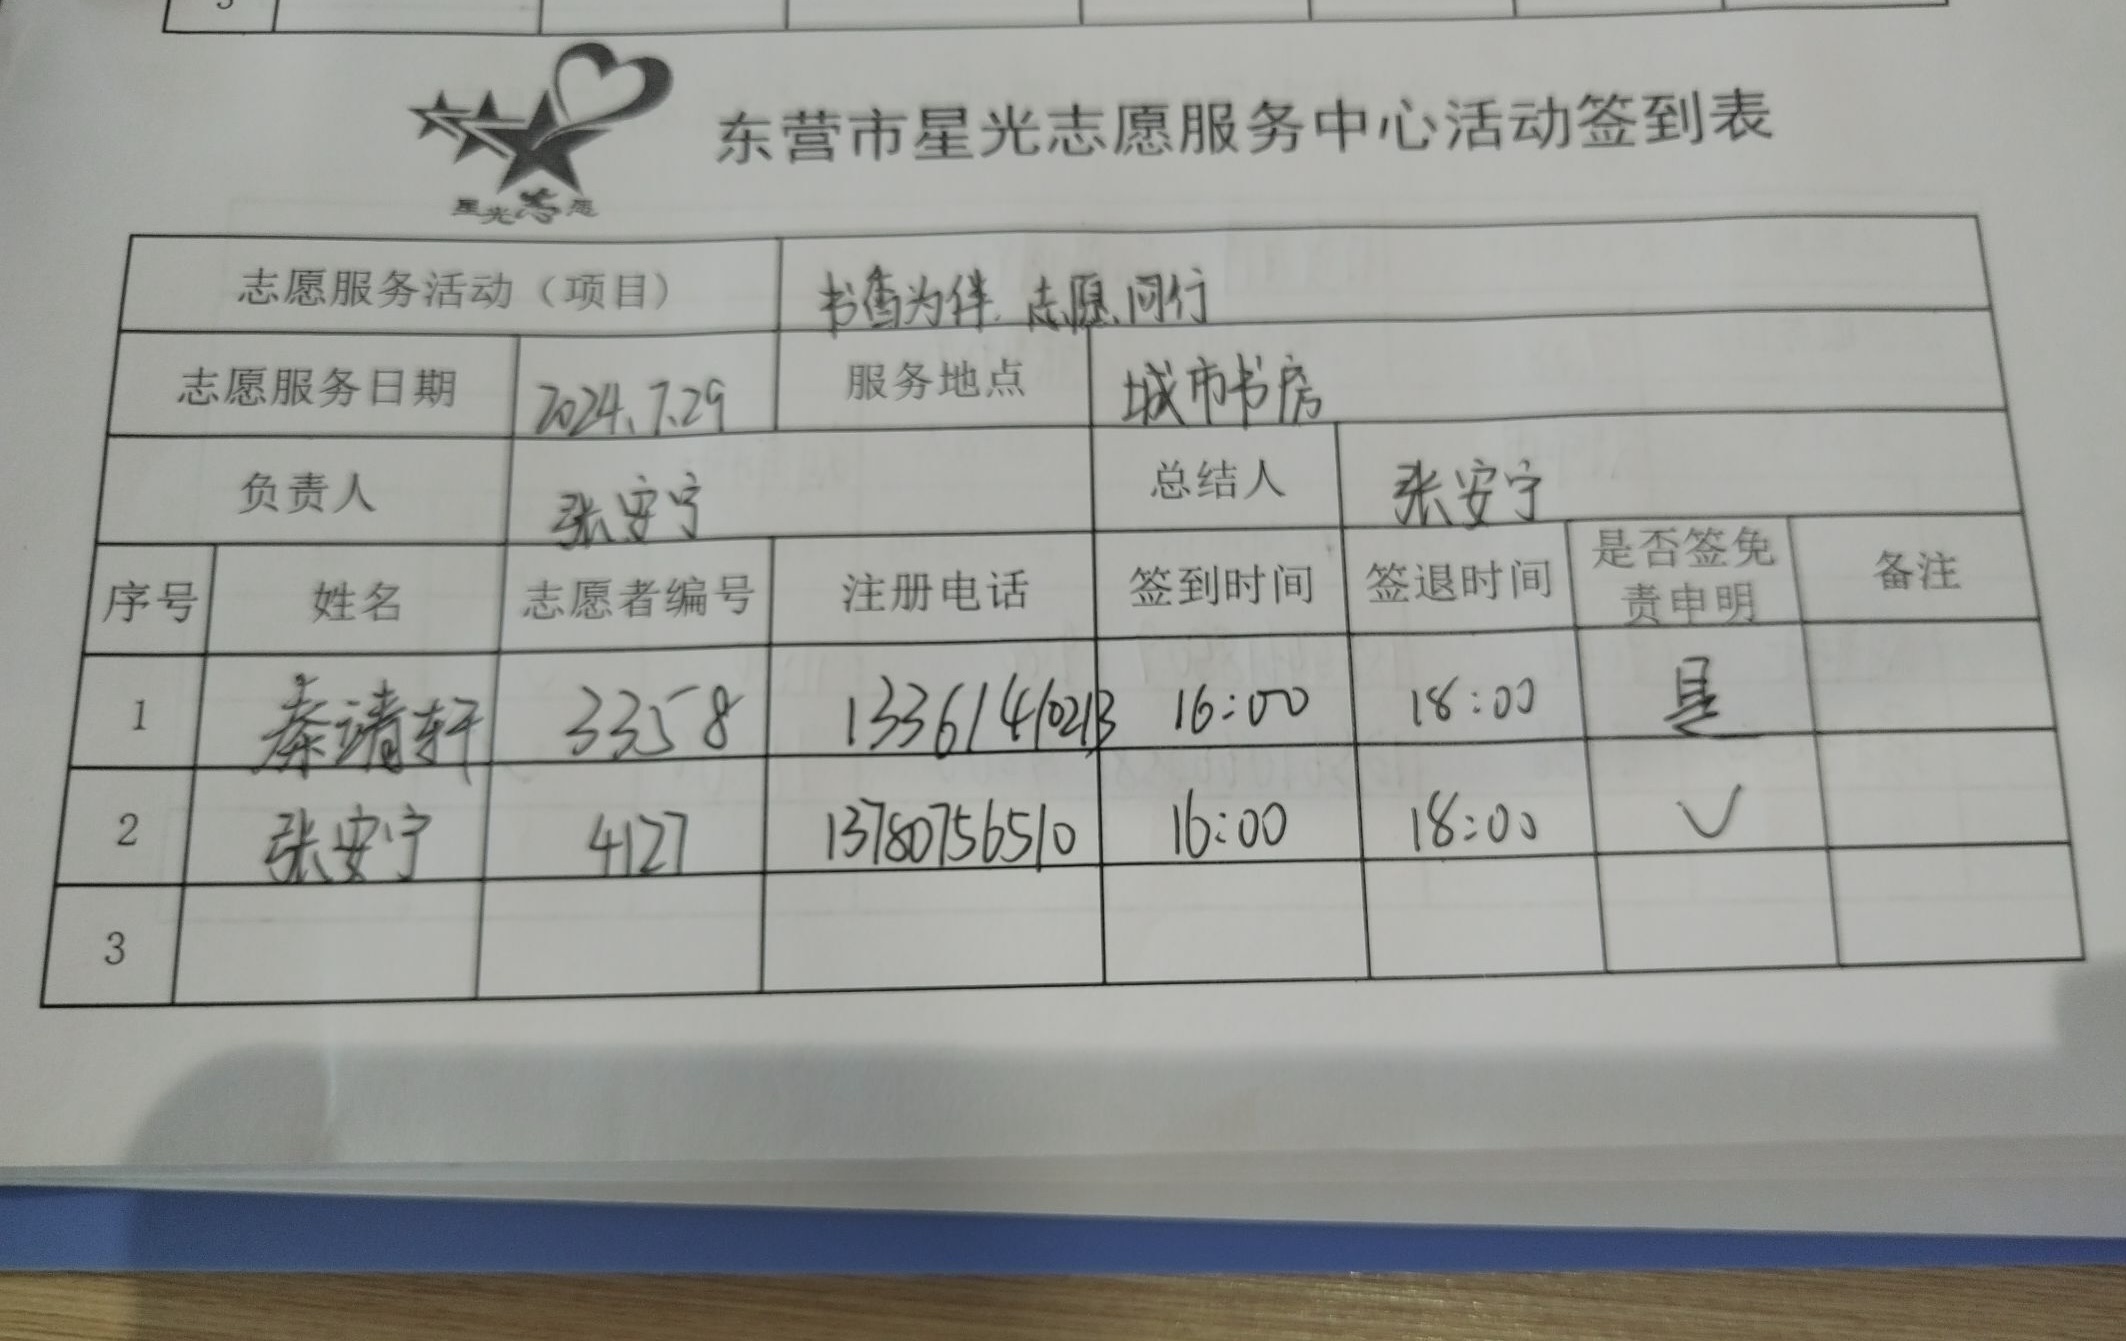 东营市星光志愿服务中心活动签到表
星光志愿
志愿服务活动（项目） 书香为伴 志愿同行
志愿服务日期 2024.7.29 服务地点 城市书房
负责人 张安宁 总结人 张安宁
序号 姓名 志愿者编号 注册电话 签到时间 签退时间 是否签免责申明 备注
1 秦靖轩 3358 13361461213 16:00 18:00 是
2 张安宁 4127 13780756510 16:00 18:00 √
3